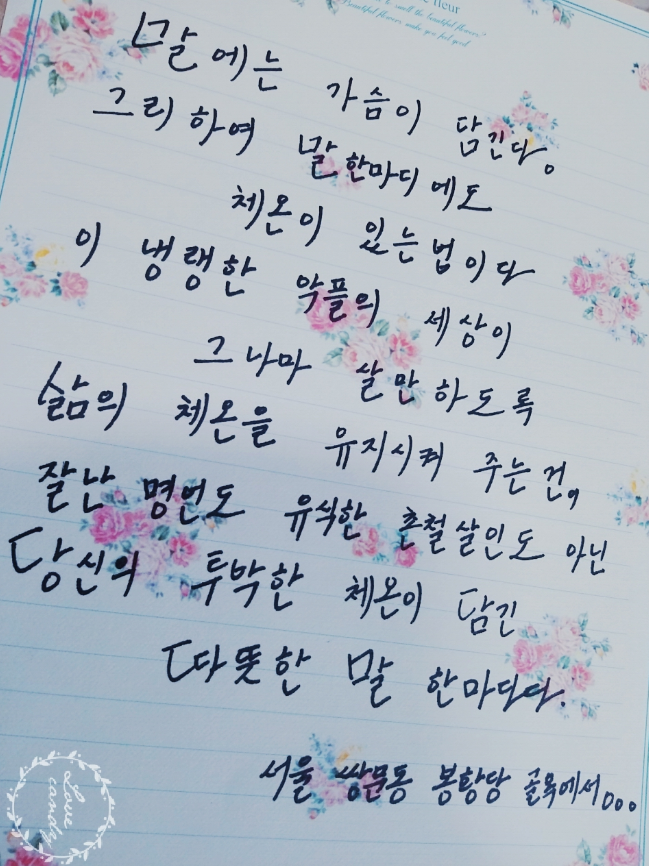 fleur
to smell the beautiful flowers.
Beautiful flowers make you feel good
말에는 가슴이 담긴다.
그리하여 말 한마디에도
체온이 있는 법이다
이 냉랭한 악플의 세상이
그나마 살만하도록
삶의 체온을 유지시켜 주는건,
잘난 명언도 유식한 촌철살인도 아닌
당신의 투박한 체온이 담긴
따뜻한 말 한마디다.
서울 쌍문동 봉황당 골목에서...
Love
candy